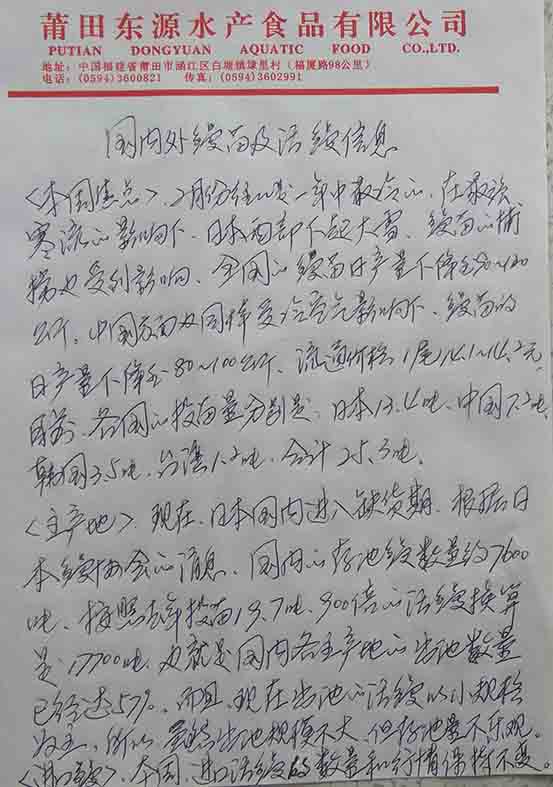 莆田东源水产食品有限公司
PUTIAN DONGYUAN AQUATIC FOOD CO.,LTD.
地址：中国福建省莆田市涵江区白塘镇埭里村（福厦路98公里）
电话：(0594)3600821 传真：(0594)3602991
国内外鳗苗及活鳗信息
<本国焦点>、2月份往以是一年中最冷的、在最强
寒流的影响下、日本西部下起大雪、鳗苗的捕
捞也受到影响、全国的鳗苗日产量下降至80~120
公斤。中国方面也同样受冷空气影响下、鳗苗的
日产量下降至80~100公斤、流通价格1尾14.1~14.2元、
目前、各国的投苗量分别是、日本13.4吨、中国7.2吨、
韩国3.5吨、台湾1.2吨、合计25.3吨。
<主产地>、现在、日本国内进入缺货期、根据日
本鳗协会的消息、国内的存池鳗数量约7600
吨、按照去年投苗19.7吨、900倍的活鳗换算
是、17700吨、也就是国内各主产地的出池数量
已经达57%、而且、现在出池的活鳗以小规格
为主、所以、虽然出池规模不大、但存池量不乐观。
<进口鳗>、本国、进口活鳗的数量和行情保持不变。